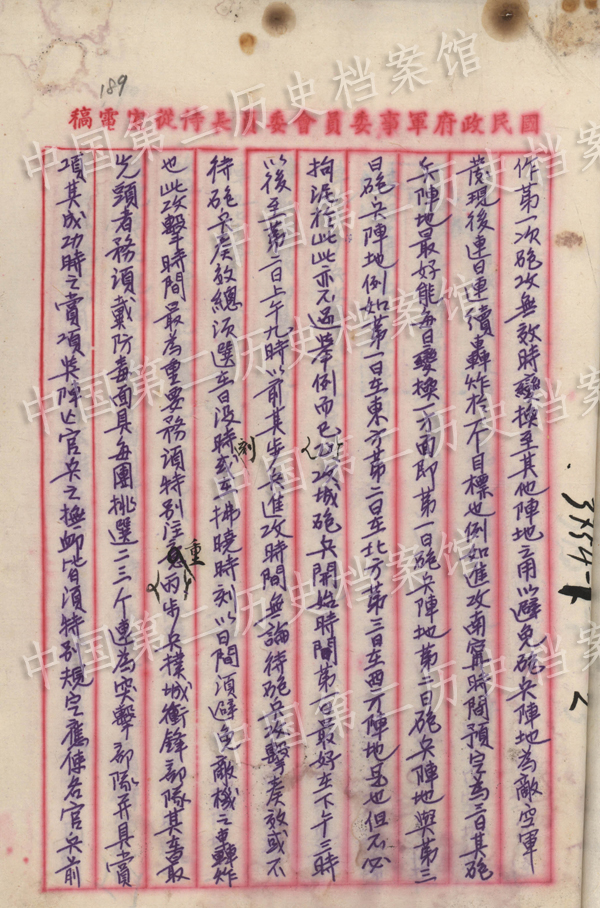 189
國民政府軍事委員會委員長侍從室電稿
作第一次砲攻無效時變換至其他陣地之用以避免砲兵陣地為敵空軍
發現後連日連續轟炸於不目標也例如進攻南甯時間預定為三日其砲
兵陣地最好能每日變換一方面即第一日砲兵陣地第二日砲兵陣地與第三
日砲兵陣地例如第一日在東方第二日在北方第三日在西方陣地是也但不必
拘泥於此此亦不過舉例而已攻城砲兵開始時間第一日最好在下午三時
以後至第二日上午九時以前其步兵進攻時間無論待砲兵攻擊奏效或不
待砲兵奏效總須選在日沒時刻或在拂曉時刻以日間須避免敵機之轟炸
也此攻擊時間最為重要務須特別注重而步兵撲城衝鋒部隊其在最
先頭者務須戴防毒面具每團挑選二三个連為突擊部隊并具賞
項其成功時之賞項與陣亡官兵之撫卹皆須特別規定應傳各官兵前
中国第二历史档案馆
中国第二历史档案馆
中国第二历史档案馆
中国第二历史档案馆
2